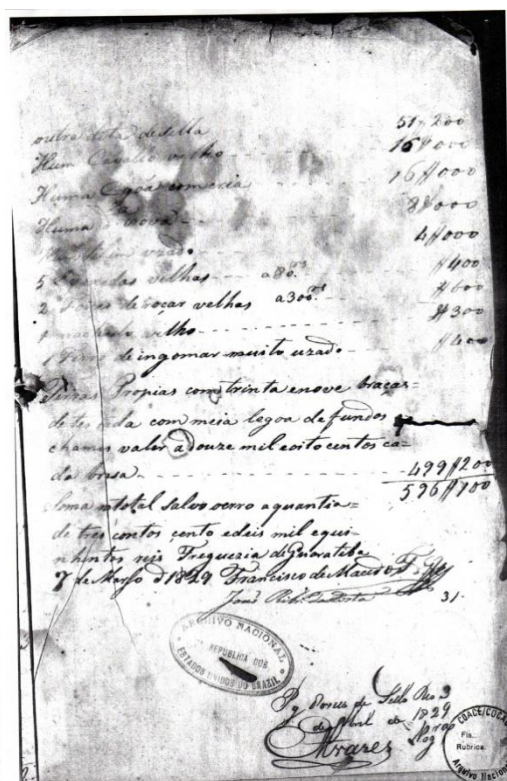 outra dita de sella 51$200
Hum Cavallo velho 16$000
Huma Egoa com cria 16$000
Huma 8$000
uzado 4$000
5 Enxadas velhas a 80 rs $400
2 Fouces de roçar velhas a 300 rs $600
1 machado velho $300
1 Ferro de ingomar muito uzado $600
Terras Propias com trinta e nove braças
de testada com meia legoa de fundos
chamos valer a douze mil e oito centos ca-
da brasa 499$200
596$100
Soma o total salvo erro a quantia
de tres contos cento e deis mil equi-
nhentos reis Freguezia de Guaratiba
7 de Março d 1829 Francisco de Macedo
José Ribr.º da Costa 31
ARCHIVO NACIONAL
REPUBLICA DOS
ESTADOS UNIDOS DO BRAZIL
Pg de Sello Rio 3
de Abril de 1829
Alvarez
COACE/CODAC
Fls.
Rubrica
Arquivo Nacional